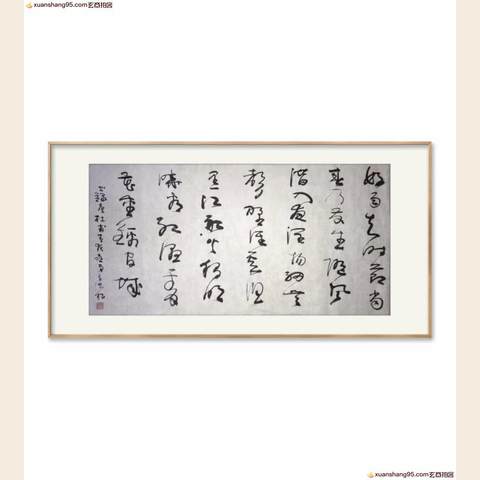 xuanshang95.com
好雨知时节当
春乃发生随风
潜入夜润物细无
声野径云俱
黑江船火独明
晓看红湿处
花重锦官城
录唐杜甫
xuanshang95.com